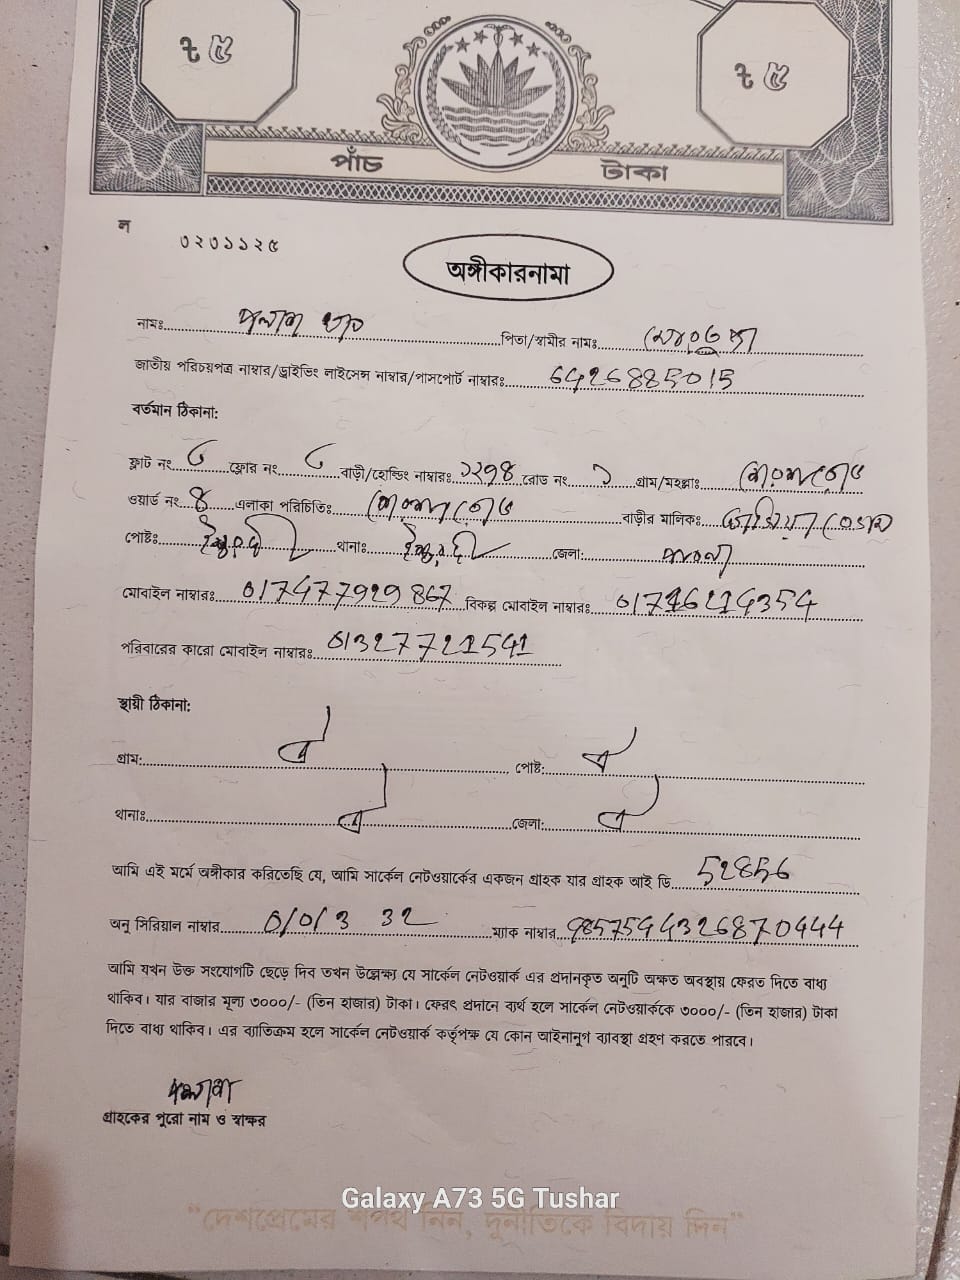 ৳ ৫ ৳ ৫
পাঁচ টাকা
ন
৩২৩১১২৫
অঙ্গীকারনামা
নামঃ পিতা/স্বামীর নামঃ
জাতীয় পরিচয়পত্র নাম্বার/ড্রাইভিং লাইসেন্স নাম্বার/পাসপোর্ট নাম্বারঃ 6426885015
বর্তমান ঠিকানা:
ফ্লাট নং ফ্লোর নং বাড়ী/হোল্ডিং নাম্বারঃ ১২৭৪ রোড নং ১ গ্রাম/মহল্লাঃ
ওয়ার্ড নং ৪ এলাকা পরিচিতিঃ বাড়ীর মালিক:
পোষ্টঃ ঈশ্বরদী থানাঃ ঈশ্বরদী জেলা: পাবনা
মোবাইল নাম্বারঃ 01747 বিকল্প মোবাইল নাম্বারঃ
পরিবারের কারো মোবাইল নাম্বারঃ 01327721541
স্থায়ী ঠিকানা:
গ্রাম: ঐ পোষ্ট: ঐ
থানাঃ ঐ জেলা: ঐ
আমি এই মর্মে অঙ্গীকার করিতেছি যে, আমি সার্কেল নেটওয়ার্কের একজন গ্রাহক যার গ্রাহক আই ডি 52856
অনু সিরিয়াল নাম্বার ম্যাক নাম্বার
আমি যখন উক্ত সংযোগটি ছেড়ে দিব তখন উল্লেখ্য যে সার্কেল নেটওয়ার্ক এর প্রদানকৃত অনুটি অক্ষত অবস্থায় ফেরত দিতে বাধ্য
থাকিব। যার বাজার মূল্য ৩০০০/- (তিন হাজার) টাকা। ফেরৎ প্রদানে ব্যর্থ হলে সার্কেল নেটওয়ার্ককে ৩০০০/- (তিন হাজার) টাকা
দিতে বাধ্য থাকিব। এর ব্যাতিক্রম হলে সার্কেল নেটওয়ার্ক কর্তৃপক্ষ যে কোন আইনানুগ ব্যাবস্থা গ্রহণ করতে পারবে।
গ্রাহকের পুরো নাম ও স্বাক্ষর
Galaxy A73 5G Tushar
"দেশপ্রেমের শপথ নিন, দুর্নীতিকে বিদায় দিন"